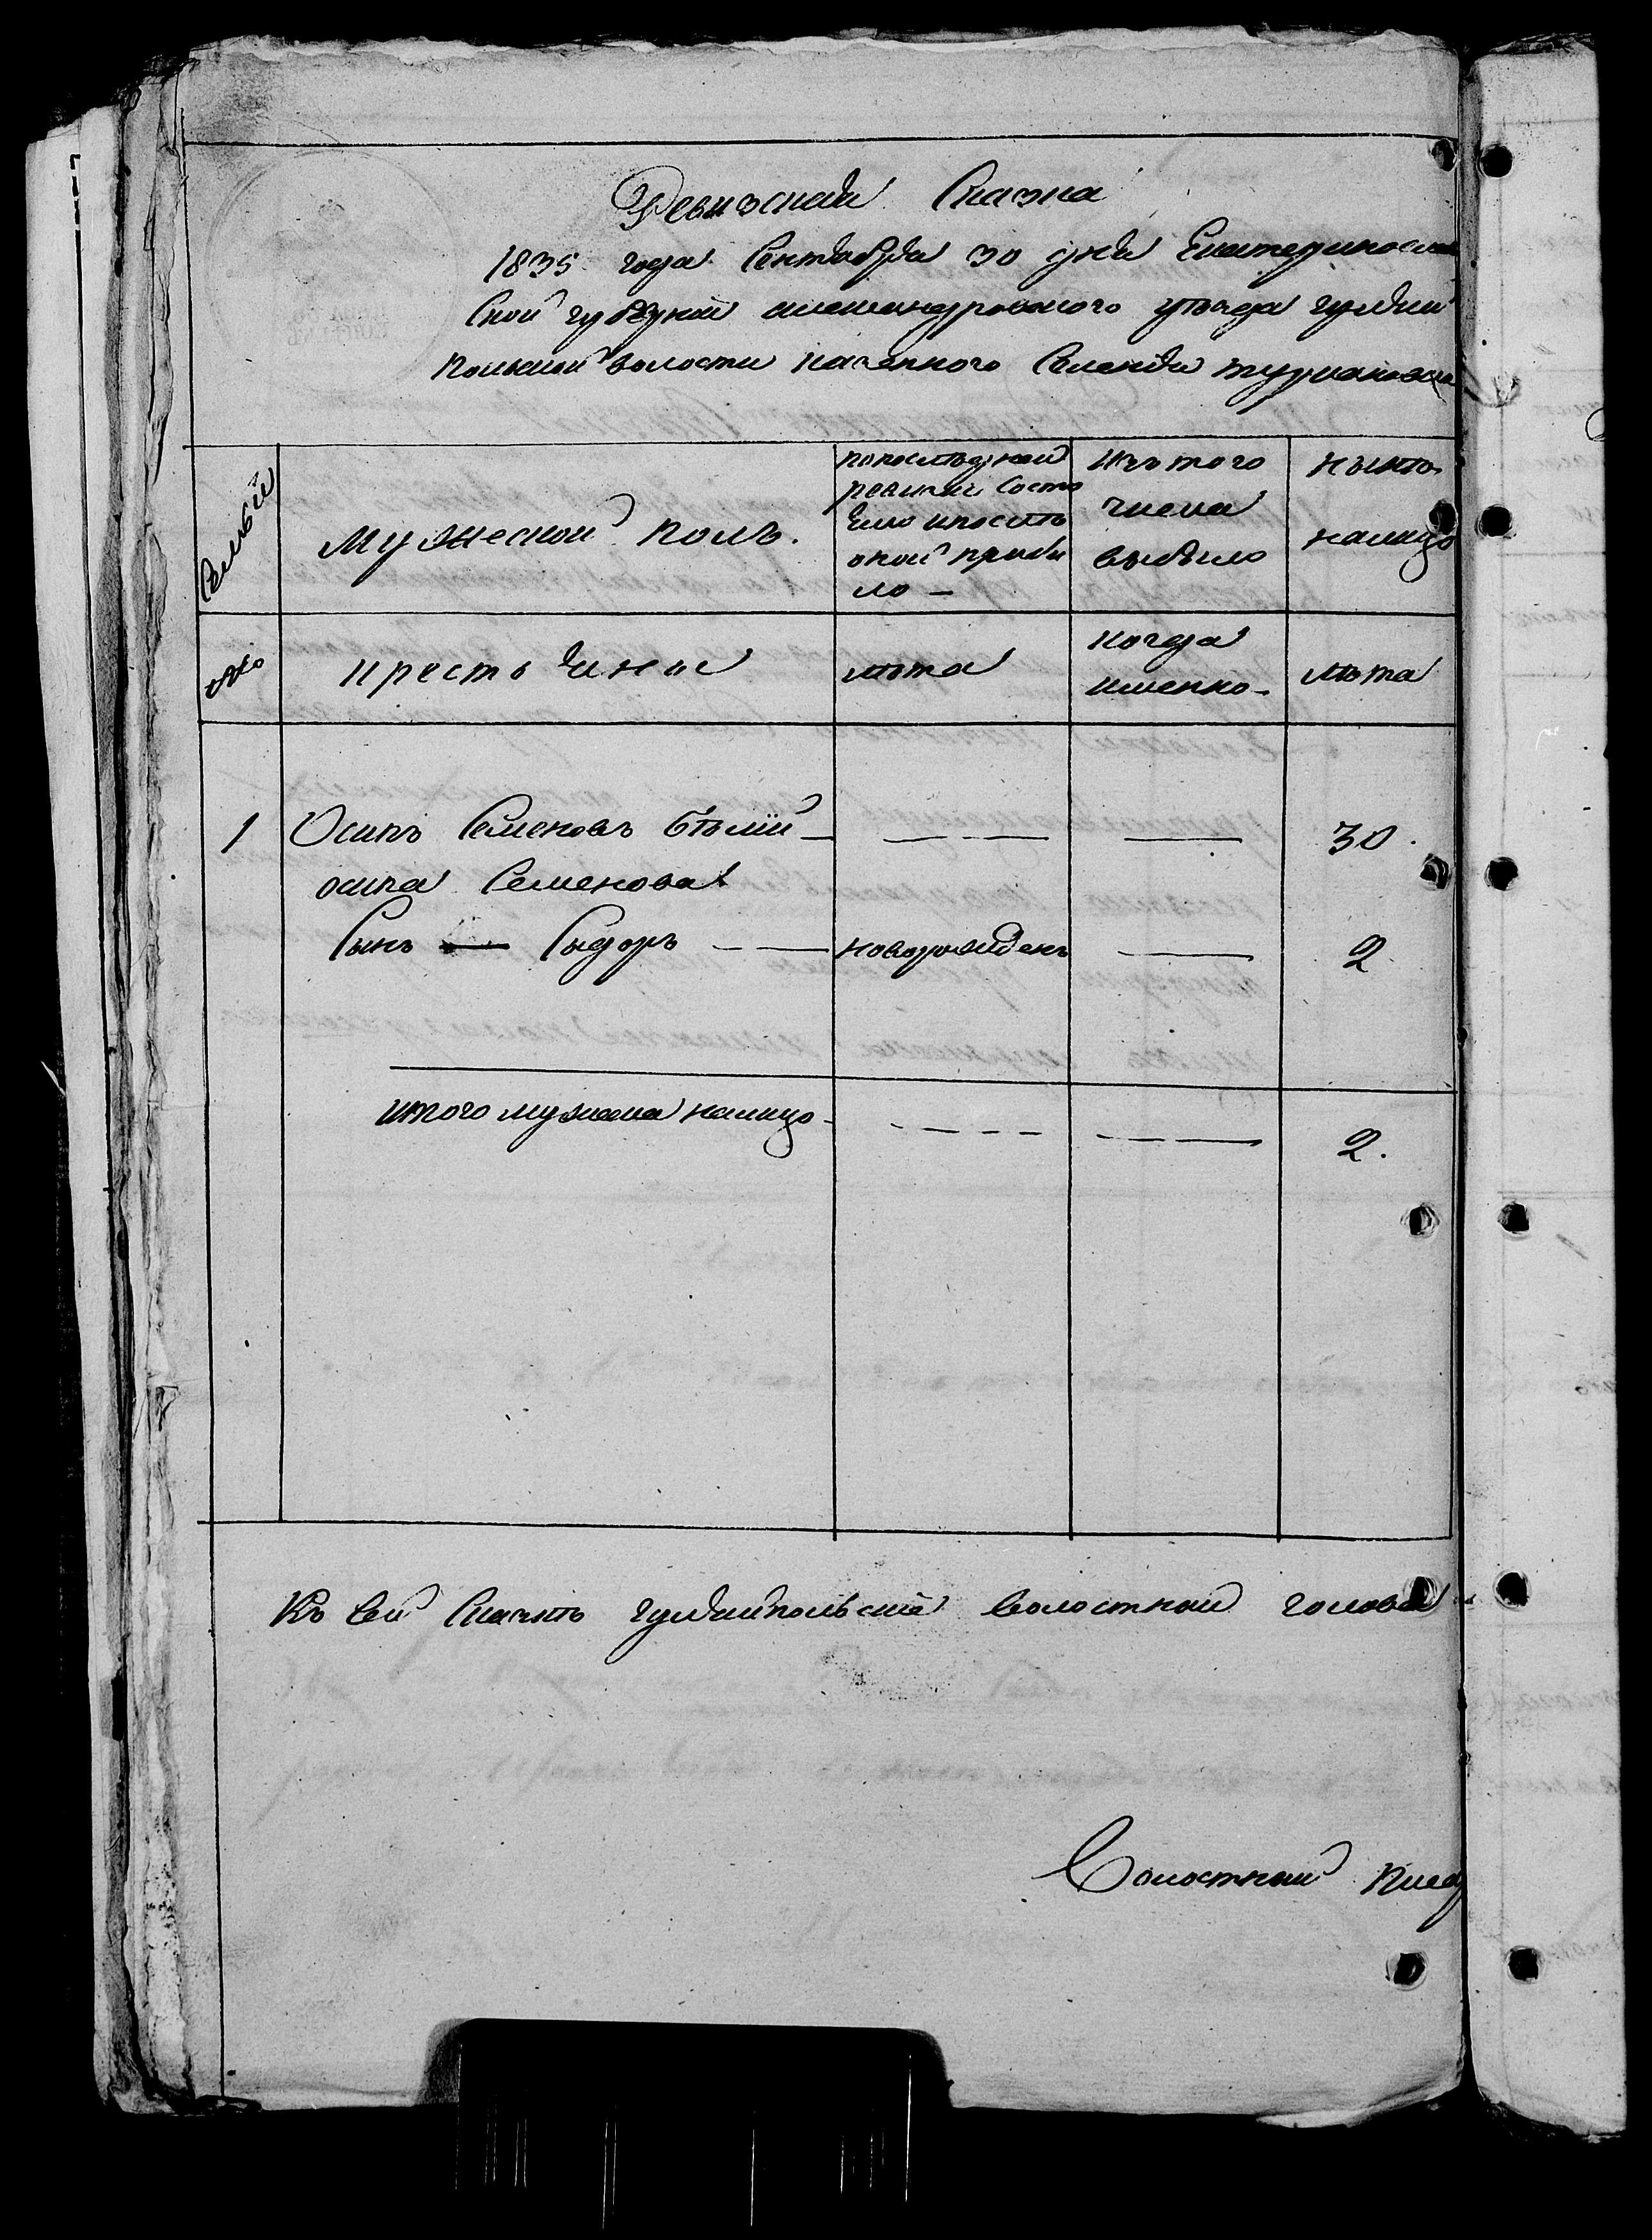 Ревизская Сказка
1835 года Сентября 30 дня Екатеринослав
ской губернии александровского уѣзда гуляй
польской волости казенного Селенія туркановки
Семьи
мужеской полъ.
попослѣдней
ревизіи состо
яло ипослѣ
оной прибы
ло —
Изътого
числа
выбыло
нынѣ
налицо
№
крестьяне
лѣта
когда
именно
лѣта
1 Осипъ Семеновъ бѣлій — — — — 30.
осипа Семенова
Сынъ — Сыдоръ — — новорожденъ — 2
итого мужеска налицо — — — — 2.
Къ сей Сказкѣ гуляйпольскій волостной голова
Волостной писар